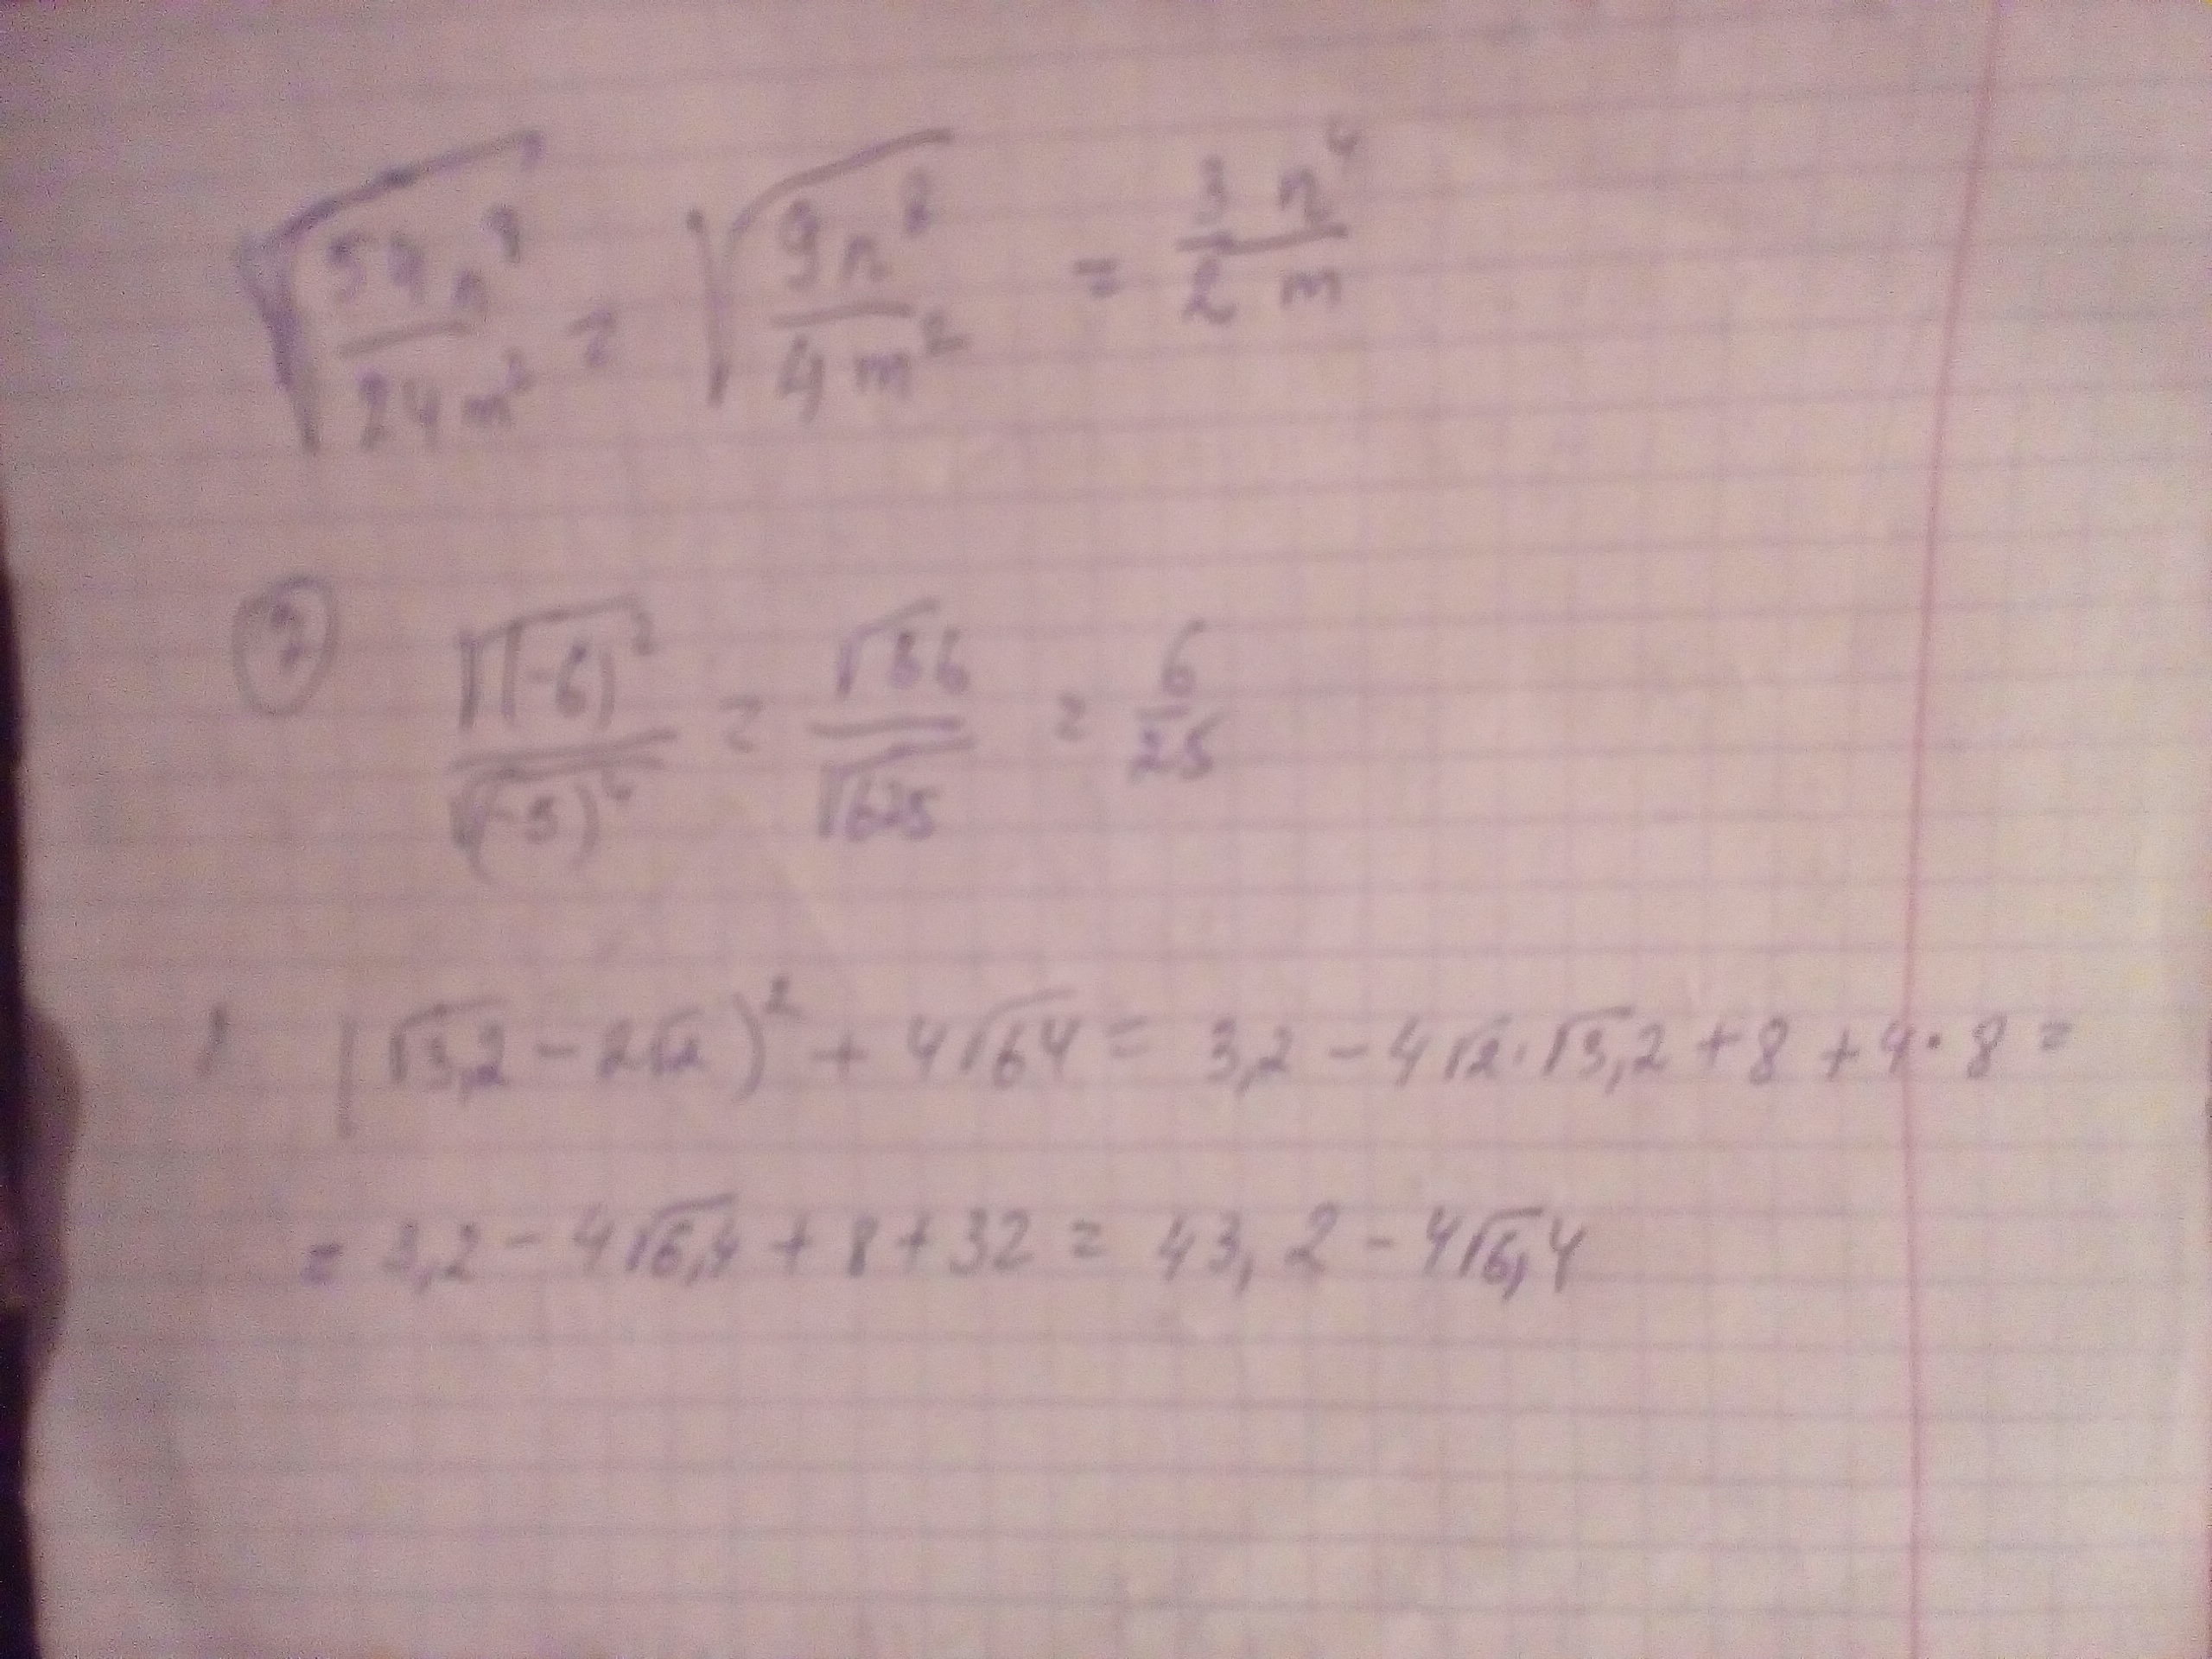 √(54n⁸/24m²) = √(9n⁸/4m²) = 3n⁴/2m
② √(-6)²/√(-5)⁴ = √36/√625 = 6/25
(√3,2 - 2√2)² + 4√64 = 3,2 - 4√2·√3,2 + 8 + 4·8 =
= 3,2 - 4√6,4 + 8 + 32 = 43,2 - 4√6,4